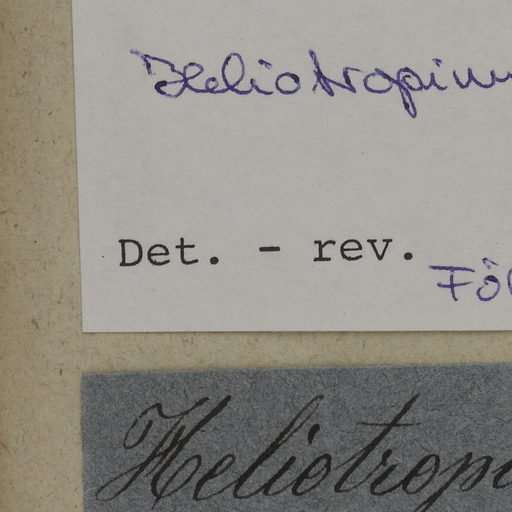 Heliotropium
Det. - rev.
Fö
Heliotrop